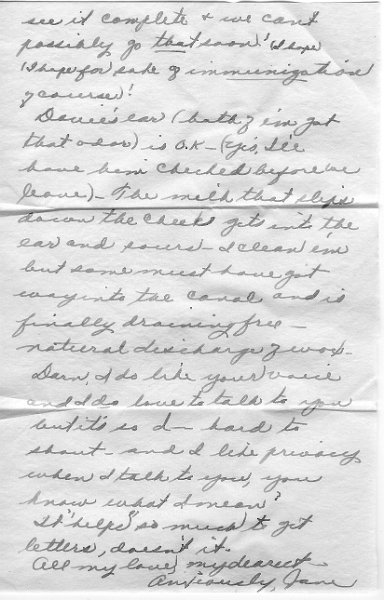 see it complete & we can't
possibly go that soon! (I hope
(I hope for sake of immunization
of course!
Davie's ear (both of 'em got
that odor) is O.K. – (yes, I'll
have him checked before we
leave) – The milk that slips
down the cheek gets into the
ear and sours – I clean 'em
but some must have got
way into the canal and is
finally draining free –
natural discharge of wax –
Darn, I do like your voice
and I do love to talk to you
but it's so d— hard to
shout – and I like privacy
when I talk to you, you
know what I mean?
It "helps" so much to get
letters, doesn't it.
All my love, my dearest –
Anxiously, Jane